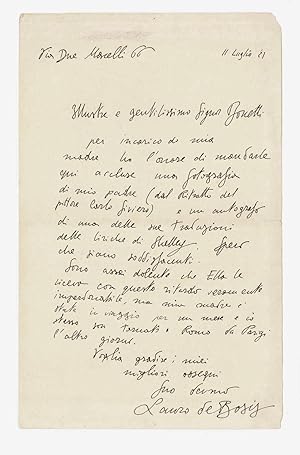 Via Due Macelli 66
11 Luglio 21
Illustre e gentilissimo Signor Bonetti
per incarico di mia
madre ho l'onore di mandarle
qui accluse una fotografia
di mio padre (dal ritratto del
pittore Carlo Siviero) e un autografo
di una delle sue traduzioni
delle liriche di Shelley. Spero
che siano soddisfacenti.
Sono assai dolente che Ella le
riceva con questo ritardo veramente
imperdonabile, ma mia madre è
stata in viaggio per un mese e io
stesso son tornato a Roma da Parigi
l'altro giorno.
Voglia gradire i miei
migliori ossequi
Suo devmo
Lauro de Bosis